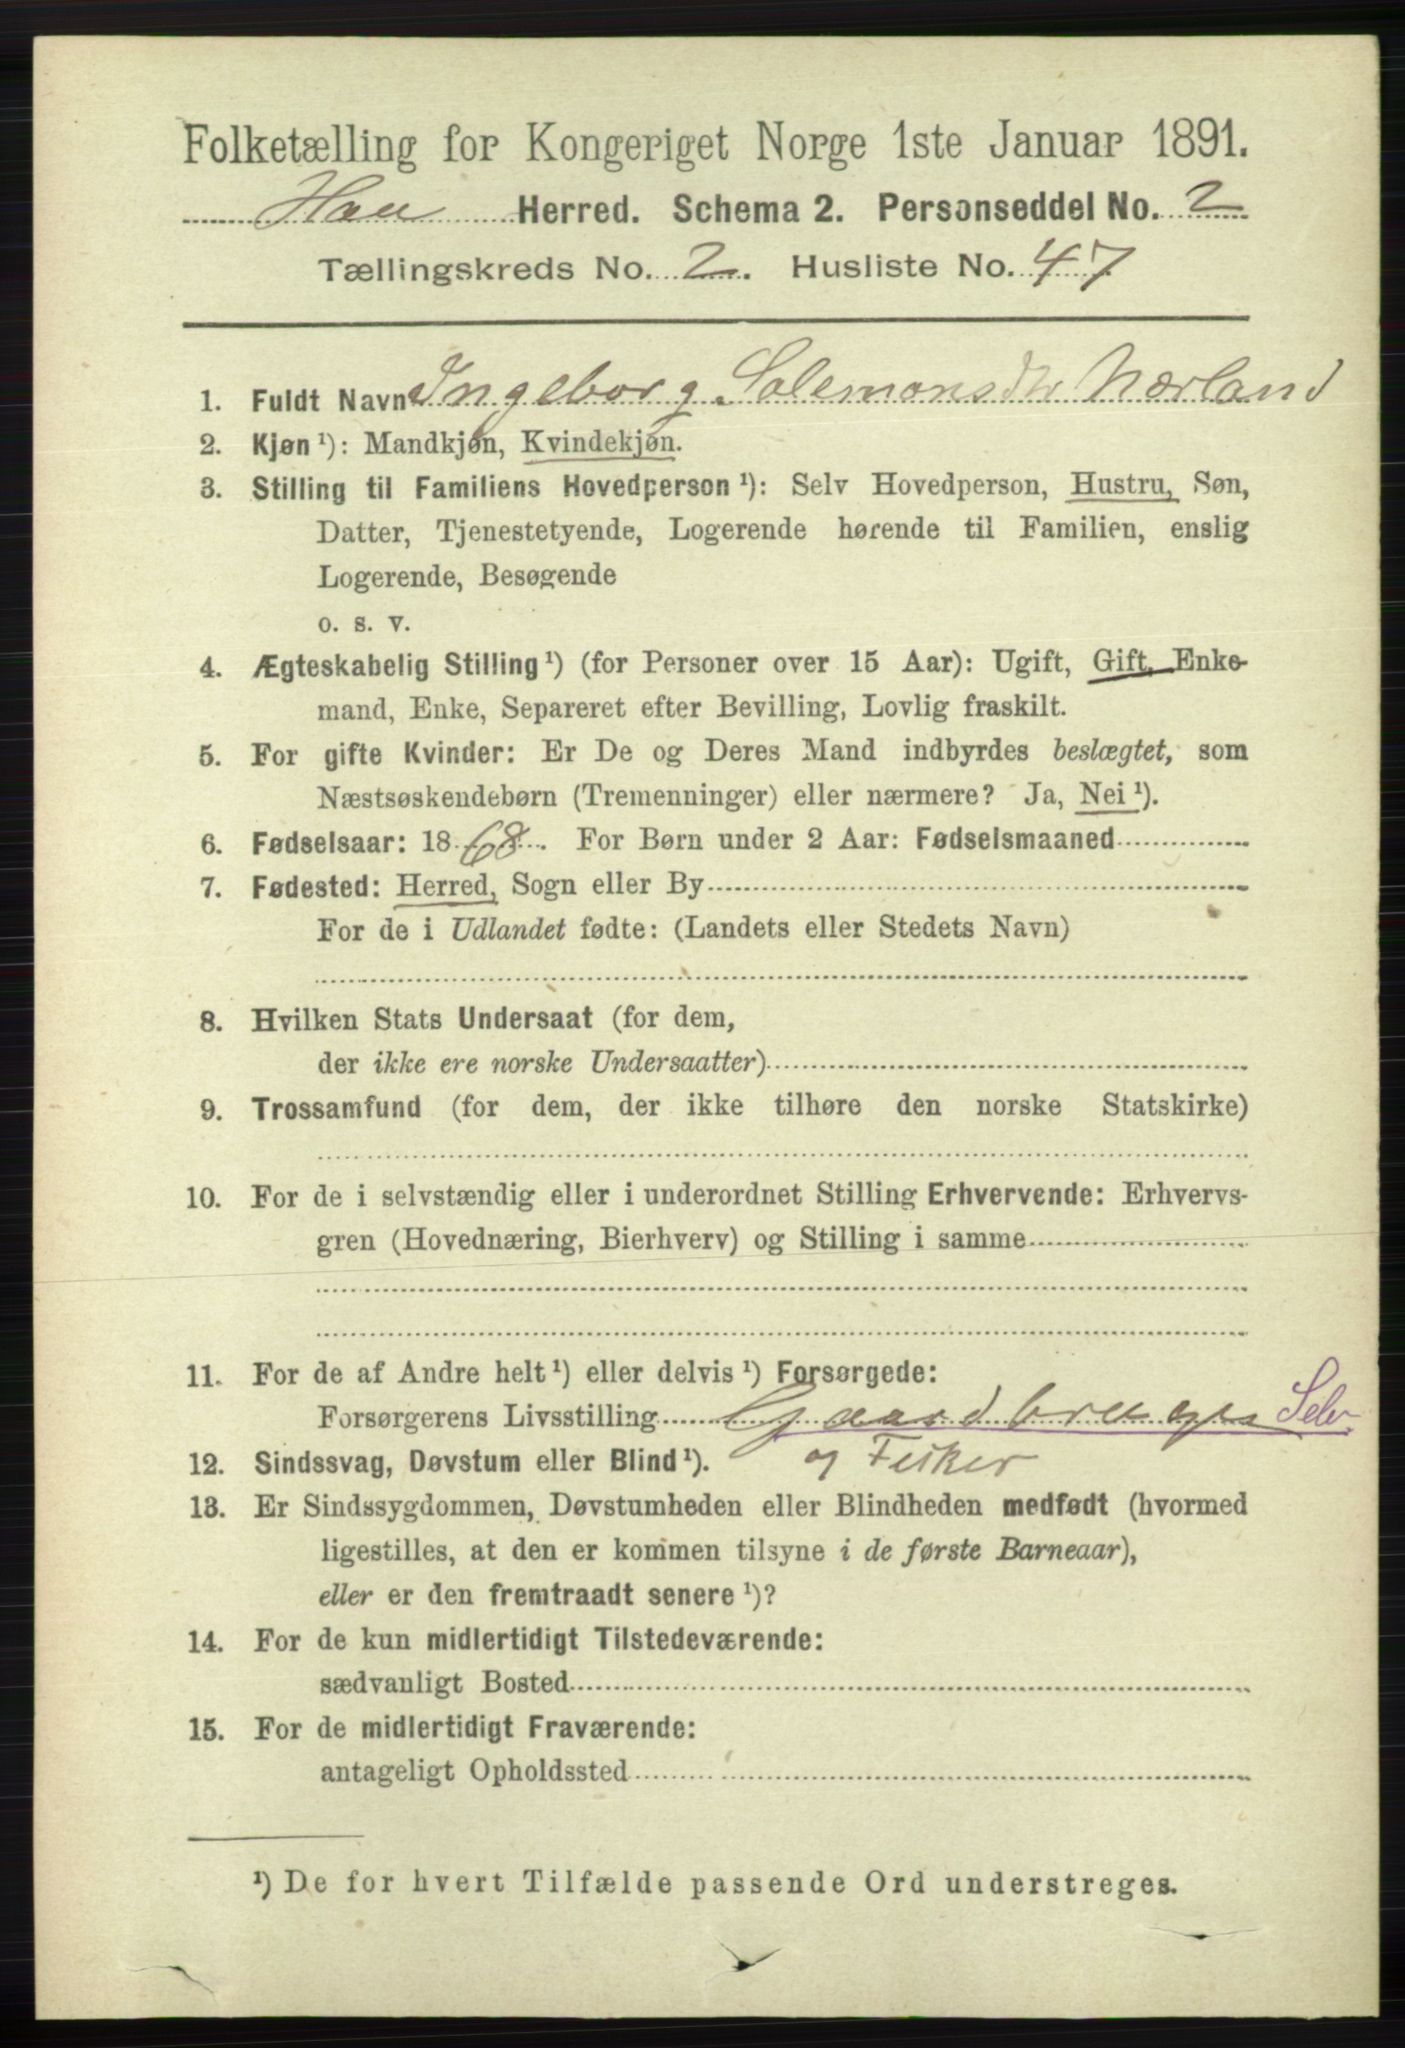 Folketælling for Kongeriget Norge 1ste Januar 1891.
Haa Herred. Schema 2. Personseddel No. 2
Tællingskreds No. 2. Husliste No. 47
1. Fuldt Navn Ingeborg Salemonsdtr Nærland
2. Kjøn ¹): Mandkjøn, Kvindekjøn.
3. Stilling til Familiens Hovedperson ¹): Selv Hovedperson, Hustru, Søn,
Datter, Tjenestetyende, Logerende hørende til Familien, enslig
Logerende, Besøgende
o. s. v.
4. Ægteskabelig Stilling ¹) (for Personer over 15 Aar): Ugift, Gift, Enke-
mand, Enke, Separeret efter Bevilling, Lovlig fraskilt.
5. For gifte Kvinder: Er De og Deres Mand indbyrdes beslægtet, som
Næstsøskendebørn (Tremenninger) eller nærmere? Ja, Nei ¹).
6. Fødselsaar: 1868. For Børn under 2 Aar: Fødselsmaaned
7. Fødested: Herred, Sogn eller By
For de i Udlandet fødte: (Landets eller Stedets Navn)
8. Hvilken Stats Undersaat (for dem,
der ikke ere norske Undersaatter)
9. Trossamfund (for dem, der ikke tilhøre den norske Statskirke)
10. For de i selvstændig eller i underordnet Stilling Erhvervende: Erhvervs-
gren (Hovednæring, Bierhverv) og Stilling i samme
11. For de af Andre helt ¹) eller delvis ¹) Forsørgede:
Forsørgerens Livsstilling Gaardbruger Selv
12. Sindssvag, Døvstum eller Blind ¹). og Fisker
13. Er Sindssygdommen, Døvstumheden eller Blindheden medfødt (hvormed
ligestilles, at den er kommen tilsyne i de første Barneaar),
eller er den fremtraadt senere ¹)?
14. For de kun midlertidigt Tilstedeværende:
sædvanligt Bosted
15. For de midlertidigt Fraværende:
antageligt Opholdssted
¹) De for hvert Tilfælde passende Ord understreges.